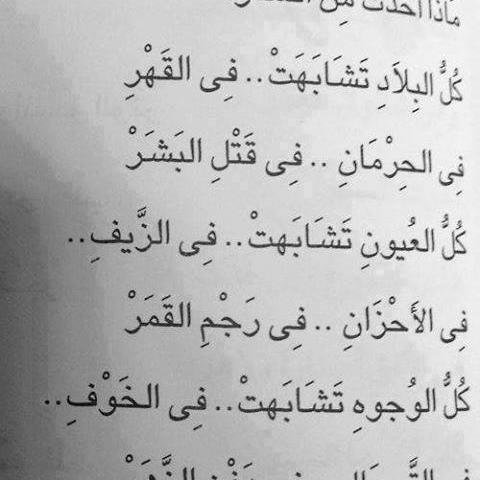 مَاذَا أَخَذْتَ مِنَ
كُلُّ البِلاَدِ تَشَابَهَتْ.. فِى القَهْرِ
فِى الحِرْمَانِ .. فِى قَتْلِ البَشَرْ
كُلُّ العُيونِ تَشَابَهتْ.. فِى الزَّيفِ..
فِى الأَحْزَانِ .. فِى رَجْمِ القَمَرْ
كُلُّ الوُجوهِ تَشَابَهتْ.. فِى الخَوْفِ..